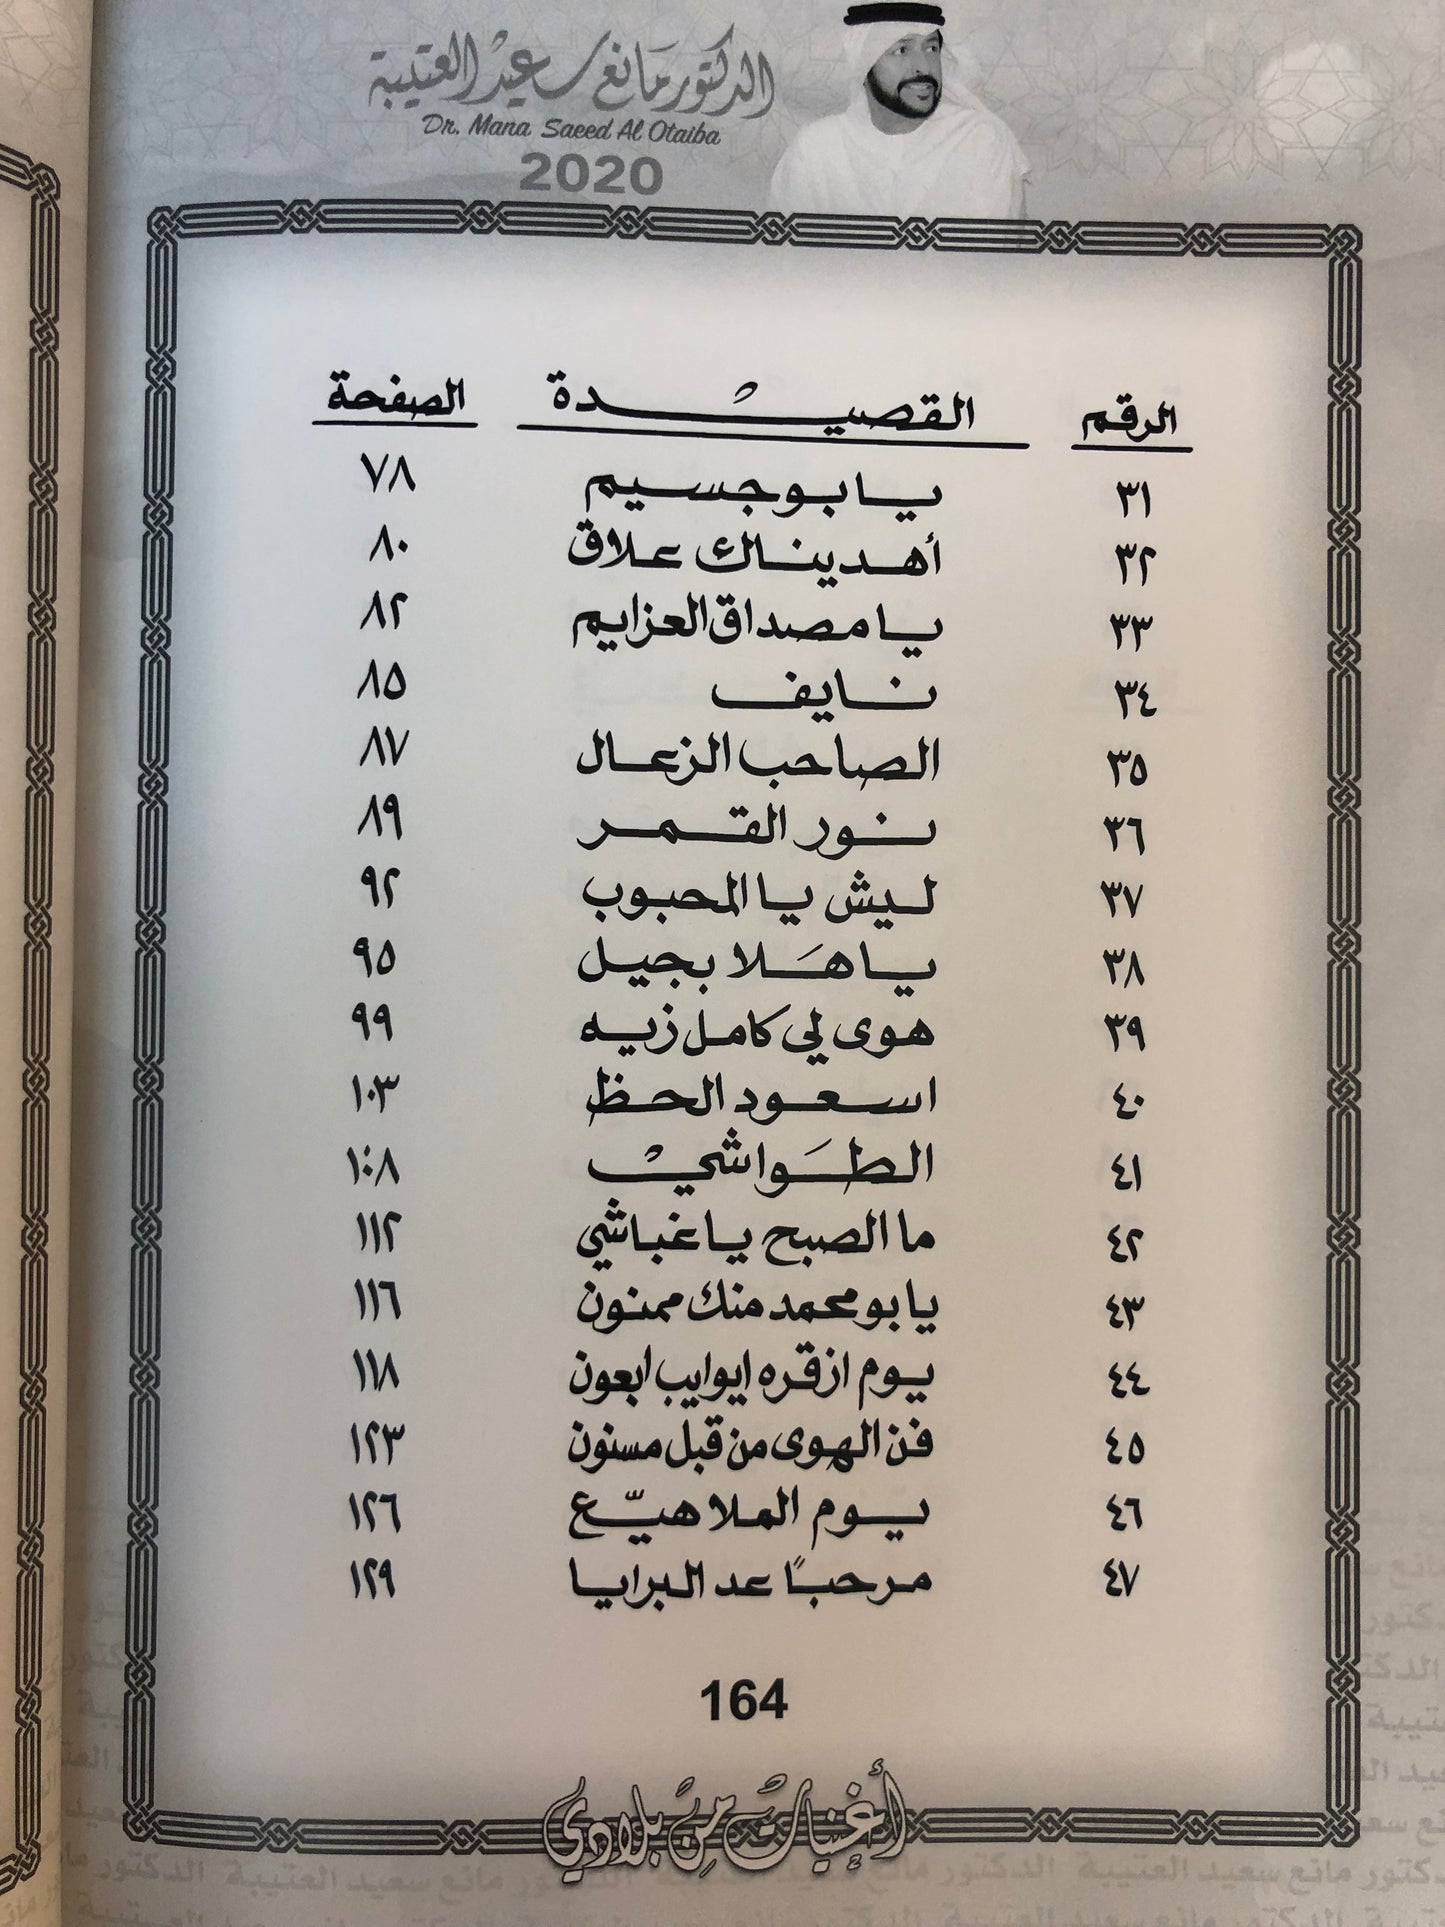 الدكتور مانع سعيد العتيبة
Dr. Mana Saeed Al Otaiba
2020
الرقم القصيدة الصفحة
٣١ يا بوجسيم ٧٨
٣٢ أهديناك علاق ٨٠
٣٣ يا مصداق العزايم ٨٢
٣٤ نايف ٨٥
٣٥ الصاحب الزعال ٨٧
٣٦ نور القمر ٨٩
٣٧ ليش يا المحبوب ٩٢
٣٨ يا هَلا بجيل ٩٥
٣٩ هوى لي كامل زيه ٩٩
٤٠ اسعود الحظ ١٠٣
٤١ الطَواشيْ ١٠٨
٤٢ ما الصبح يا غباشي ١١٢
٤٣ يا بو محمد منك ممنون ١١٦
٤٤ يوم ازقره ايوايب ابعون ١١٨
٤٥ فن الهوى من قبل مسنون ١٢٣
٤٦ يوم الملا هيّع ١٢٦
٤٧ مرحباً عد البرايا ١٢٩
164
أغنيات من بلادي
الدكتور مانع سعيد العتيبة الدكتور مانع سعيد العتيبة